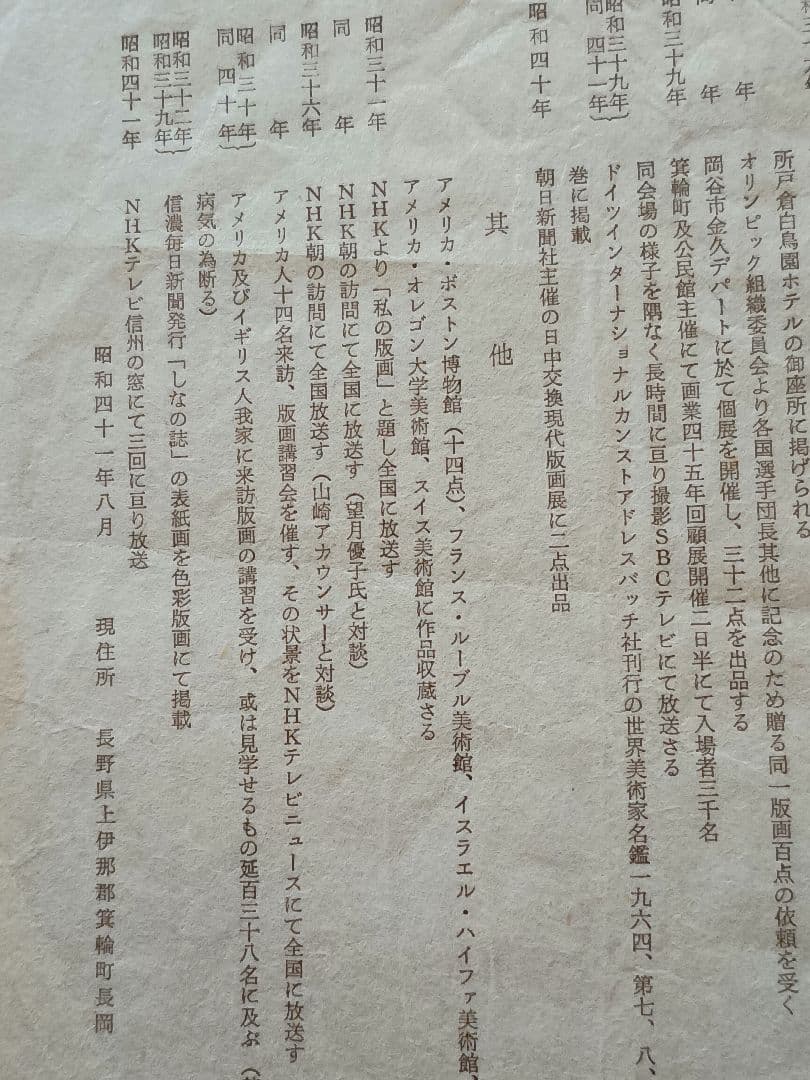 所戸倉白鳥園ホテルの御座所に掲げられる
年 オリンピック組織委員会より各国選手団長其他に記念のため贈る同一版画百点の依頼を受く
同 年 岡谷市金久デパートに於て個展を開催し、三十二点を出品する
昭和三十九年 箕輪町及公民館主催にて画業四十五年回顧展開催二日半にて入場者三千名
同会場の様子を隅なく長時間に亘り撮影SBCテレビにて放送さる
昭和三十九年
同 四十一年 ドイツインターナショナルカンストアドレスバッチ社刊行の世界美術家名鑑一九六四、第七、八、
巻に掲載
昭和四十年 朝日新聞社主催の日中交換現代版画展に二点出品
其 他
アメリカ・ボストン博物館（十四点）、フランス・ルーブル美術館、イスラエル・ハイファ美術館、
アメリカ・オレゴン大学美術館、スイス美術館に作品収蔵さる
昭和三十一年 NHKより「私の版画」と題し全国に放送す
同 年 NHK朝の訪問にて全国に放送す（望月優子氏と対談）
昭和三十六年 NHK朝の訪問にて全国放送す（山崎アカウンサーと対談）
同 年 アメリカ人十四名来訪、版画講習会を催す、その状景をNHKテレビニュースにて全国に放送す
昭和三十年
同 四十年 アメリカ及びイギリス人我家に来訪版画の講習を受け、或は見学せるもの延百三十八名に及ぶ（
病気の為断る）
昭和三十二年
昭和三十九年 信濃毎日新聞発行「しなの誌」の表紙画を色彩版画にて掲載
昭和四十一年 NHKテレビ信州の窓にて三回に亘り放送
昭和四十一年八月 現住所 長野県上伊那郡箕輪町長岡